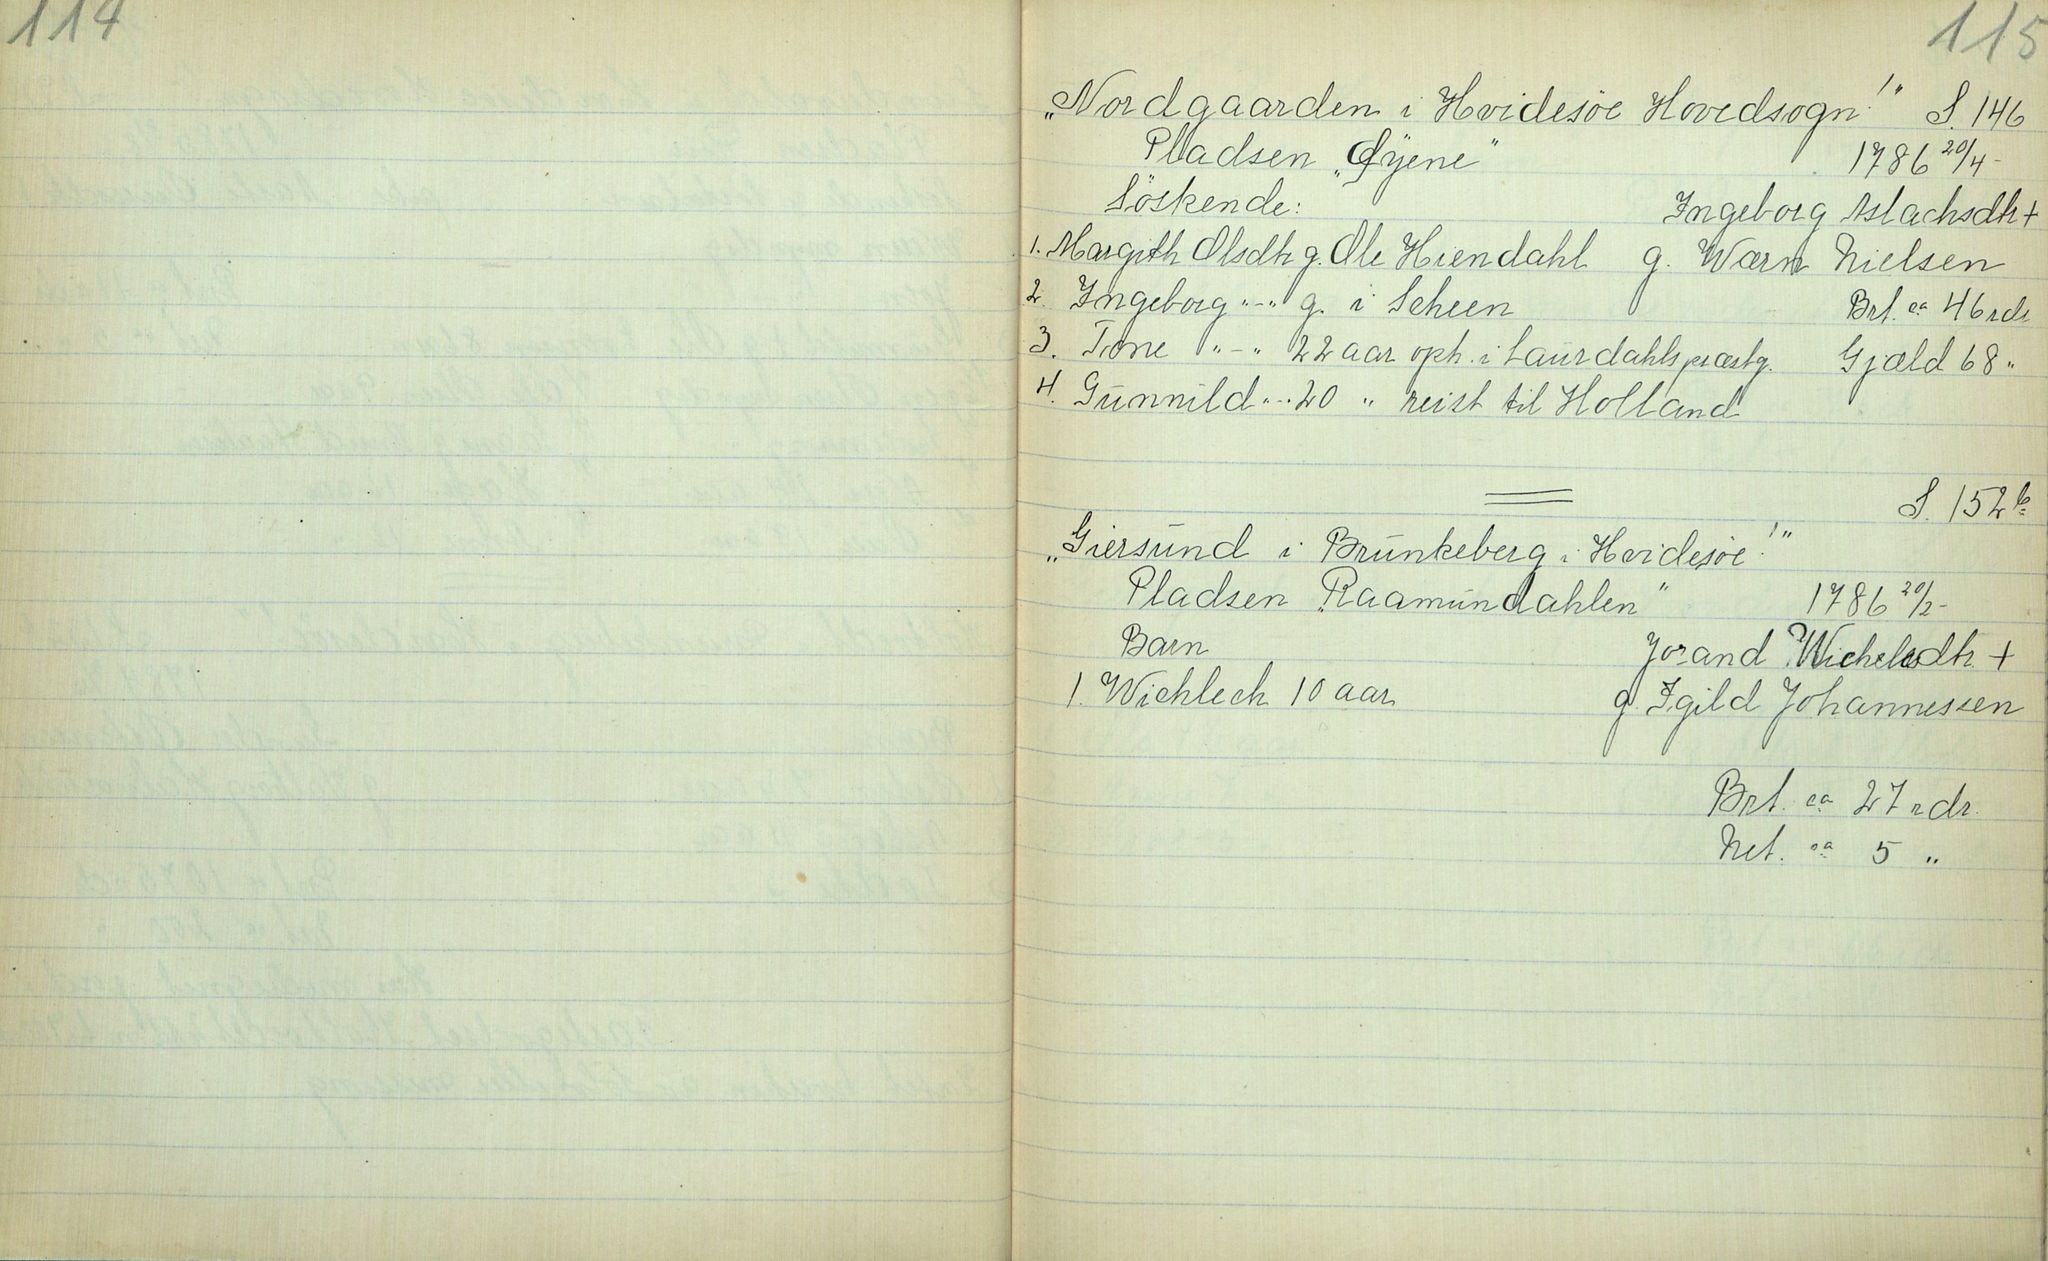 114
115
„Nordgaarden i Hvidesöe Hovedsogn!" S. 146
Pladsen „Öÿene" 1786 20/4-
Söskende: Ingeborg Aslachsdtr +
1. Margith Olsdtr g. Ole Hiendahl g. Wærn Nielsen
2. Ingeborg "-" g. i Scheen Brt. ca 46 rdr
3. Tone "-" 22 aar oph. i Laurdahls præstg. Gjæld 68 "
4. Gunnild "-" 20 " reist til Holland
S. 152 b
„Giersund i Brunkeberg i Hvidesöe!"
Pladsen „Raamundahlen" 1786 20/2-
Barn Jorand Wichelsdtr. +
1. Wichlech 10 aar g. Igild Johannessen
Brt. ca 27 rdr.
Net. ca 5 "